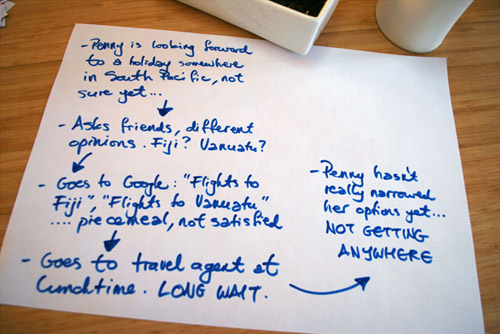 - Penny is looking forward
to a holiday somewhere
in South Pacific, not
sure yet...
- Asks friends, different
opinions. Fiji? Vanuatu?
- Goes to Google: "Flights to
Fiji", "Flights to Vanuatu"
.... piecemeal, not satisfied
- Goes to travel agent at
Lunchtime. LONG WAIT.
- Penny hasn't
really narrowed
her options yet...
NOT GETTING
ANYWHERE